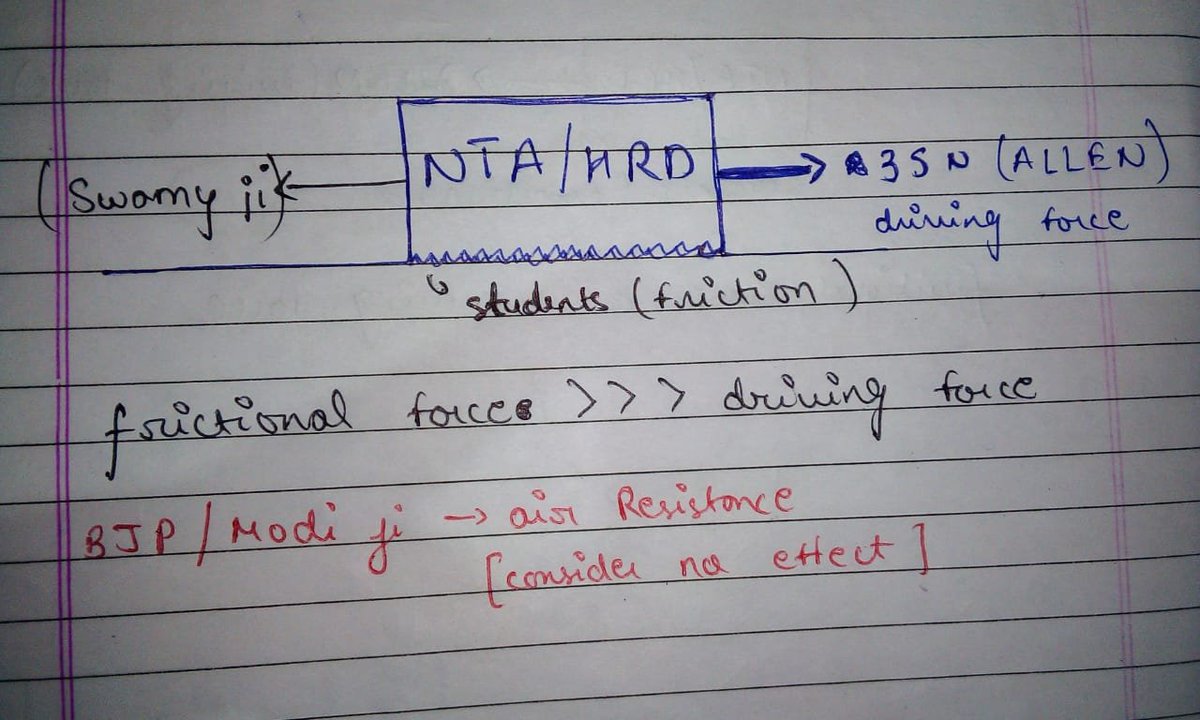 (Swamy ji) NTA/HRD 35 N (ALLEN)
driving force
students (friction)
frictional forces >>> driving force
BJP/Modi ji → air Resistance
[consider no effect]